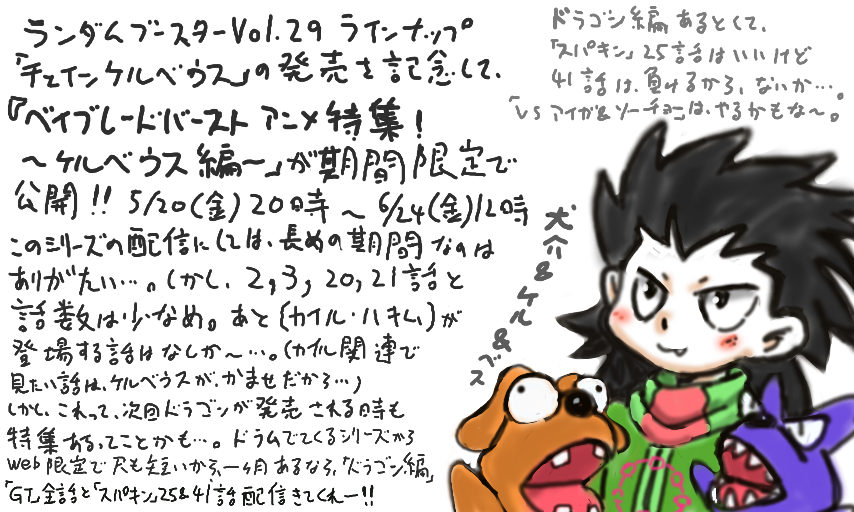 ランダムブースターVol.29 ラインナップ
「チェインケルベウス」の発売を記念して、
『ベイブレードバースト アニメ特集！
～ケルベウス編～』が期間限定で
公開!! 5/20(金)20時～6/24(金)12時
このシリーズの配信にしては、長めの期間なのは
ありがたい…。しかし、2,3,20,21話と
話数は少なめ。あと(カイル・ハキム)が
登場する話はなしか～…。(カイル関連で
見たい話は、ケルベウスが、かませだから…)
しかし、これって、次回ドラゴンが発売される時も
特集あるってことかも…。ドラムでてくるシリーズから
web限定で尺も短いから、一ヶ月あるなら、「ドラゴン編」
「GT」全話と「スパキン」25&41話配信きてくれー!!
ドラゴン編あるとして、
「スパキン」25話はいいけど
41話は、負けるから、ないか…。
「VSアイガ&ソーチョー」は、やるかもな～。
犬介&ケル&
スブ